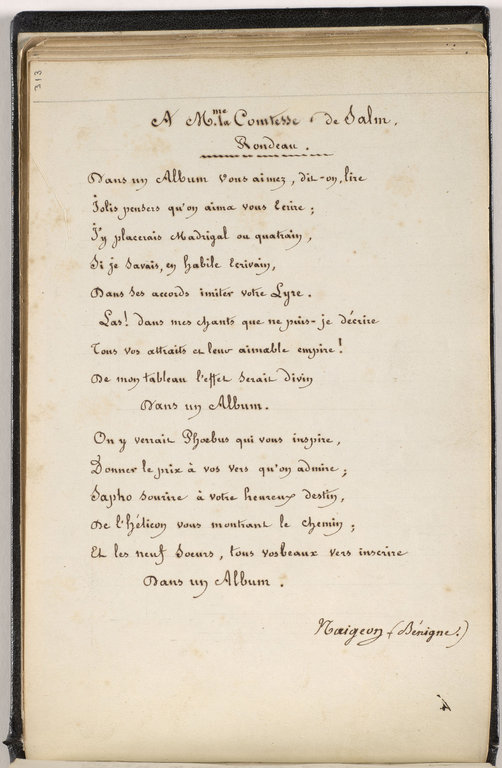 313
A Mme. la Comtesse de Salm,
Rondeau.
Dans un Album vous aimez, dit-on, lire
Jolis pensers qu'on aima vous écrire ;
J'y placerais Madrigal ou quatrain,
Si je savais, en habile Ecrivain,
Dans ses accords imiter votre Lyre.
Las! dans mes chants que ne puis-je décrire
Tous vos attraits et leur aimable empire!
De mon tableau l'effet serait divin
Dans un Album.
On y verrait Phoebus qui vous inspire,
Donner le prix à vos vers qu'on admire ;
Sapho sourire à votre heureux destin,
De l'hélicon vous montrant le chemin ;
Et les neuf Soeurs, tous vos beaux vers inscrire
Dans un Album.
Naigeon (Bénigne.)